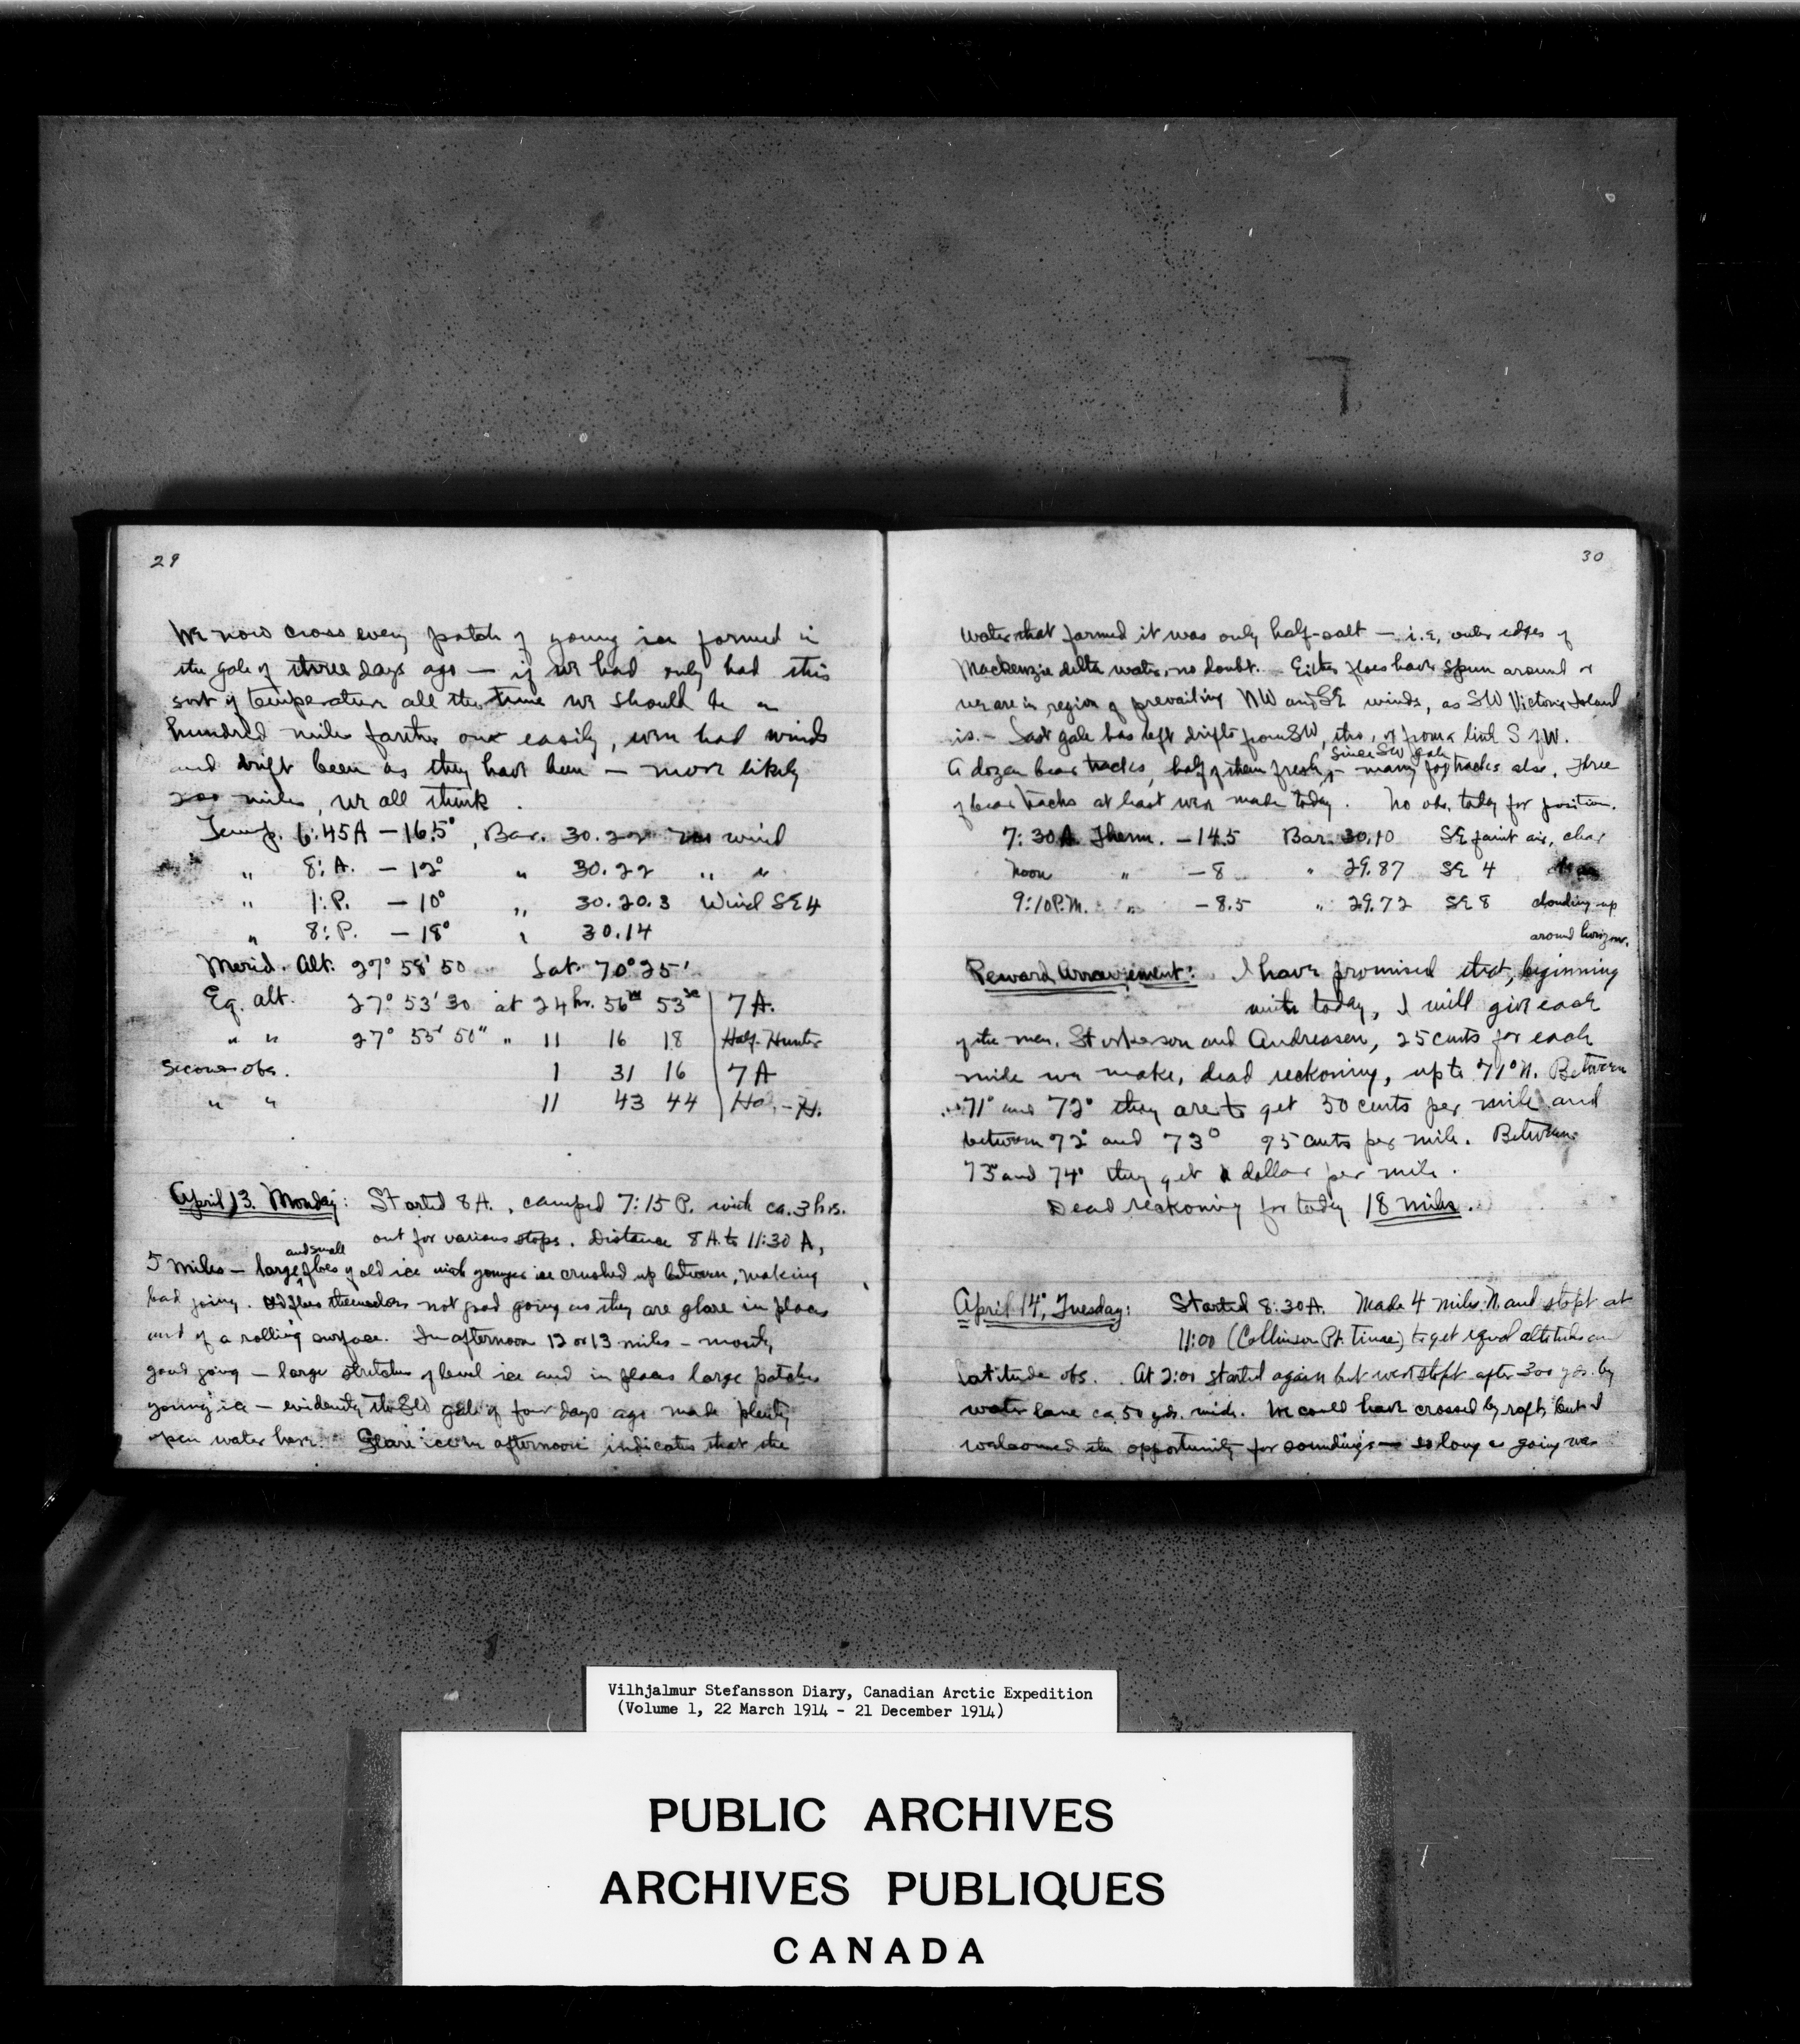 29
We now cross every patch of young ice formed in
the gale of three days ago — if we had only had this
sort of temperature all the time we should be a
hundred miles farther out easily, even had winds
and drift been as they have been — more likely
200 miles, we all think.
Temp. 6:45A — 16.5°, Bar. 30.22 no wind
" 8: A. — 12° " 30.22 " "
" 1: P. — 10° " 30.20.3 Wind SE 4
" 8: P. — 18° " 30.14
Merid. Alt. 27° 58' 50 Lat. 70° 25'
Eq. alt. 27° 53' 30 at 24 hr. 56m 53se 7 A.
" " 27° 53' 50" " 11 16 18 Half-Hunter
Second obs. 1 31 16 7 A
" " 11 43 44 Ha.-H.
April 13. Monday: Started 8 A., camped 7:15 P. with ca. 3 hrs.
out for various stops. Distance 8 A. to 11:30 A,
5 miles — large and small floes of old ice with younger ice crushed up between, making
bad going. Old floes themselves not good going as they are glare in places
and of a rolling surface. In afternoon 12 or 13 miles — mostly
good going — large stretches of level ice and in places large patches
young ice — evidently the gale of four days ago made plenty
open water here. Glare ice in afternoon indicates that the
30
water that formed it was only half-salt — i.e., outer edges of
Mackenzie delta water, no doubt. — Either floes have spun around or
we are in region of prevailing NW and SE winds, as SW Victoria Island
is. — Last gale has left drifts from SW, tho, or from a little S of W.
A dozen bear tracks, half of them fresh, since SW gale — many fox tracks also. Three
of bear tracks at least were made today. No obs. today for position.
7:30 A. Therm. — 14.5 Bar. 30.10 SE faint air, clear
Noon " — 8 " 29.87 SE 4
9:10 P.M. " — 8.5 " 29.72 SE 8 clouding up
around horizon.
Reward Arrangement: I have promised that, beginning
with today, I will give each
of the men, Storkerson and Andreasen, 25 cents for each
mile we make, dead reckoning, up to 71° N. Between
71° and 72° they are to get 50 cents per mile and
between 72° and 73° 75 cents per mile. Between
73° and 74° they get a dollar per mile.
Dead reckoning for today 18 miles.
April 14, Tuesday: Started 8:30 A. Made 4 miles N. and stopt at
11:00 (Collinson Pt. Time) to get equal altitudes and
latitude obs. At 2:00 started again but were stopt after 300 yds. by
water lane ca. 50 yds. wide. We could have crossed by raft, but I
welcomed the opportunity for soundings — so long as going was
Vilhjalmur Stefansson Diary, Canadian Arctic Expedition
(Volume 1, 22 March 1914 - 21 December 1914)
PUBLIC ARCHIVES
ARCHIVES PUBLIQUES
CANADA